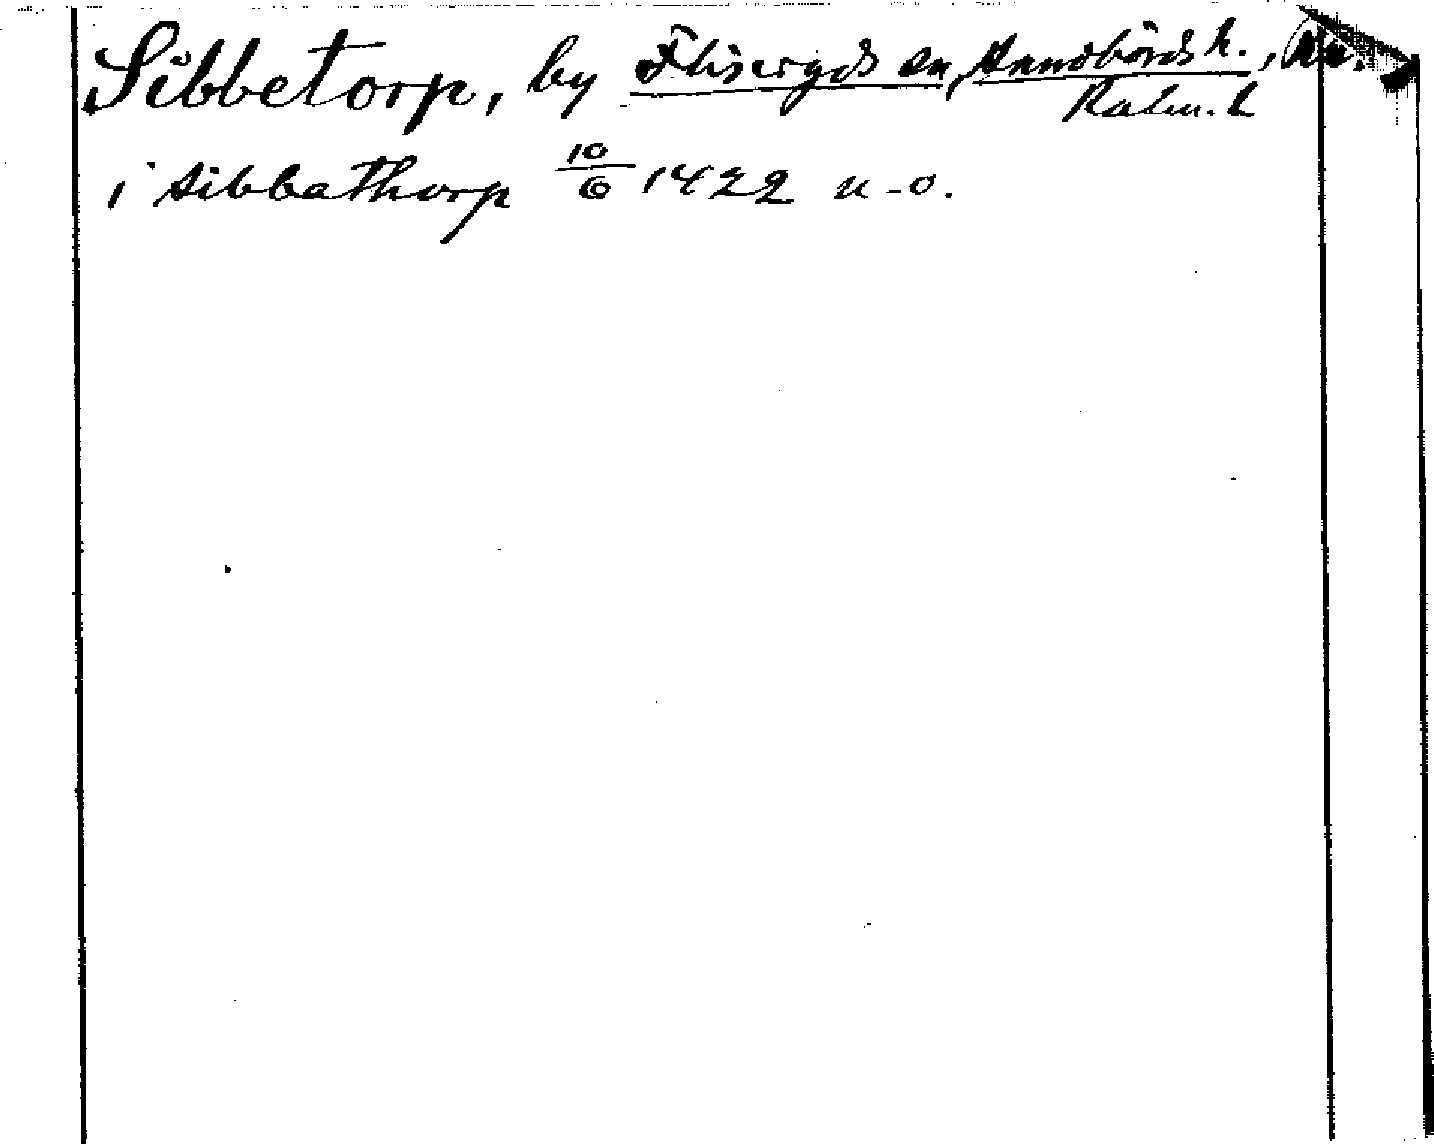 Sibbetorp, by Fliseryds sn, Handbörds h.,
Kalm. l
i sibbathorp 10/6 1422 u-o.